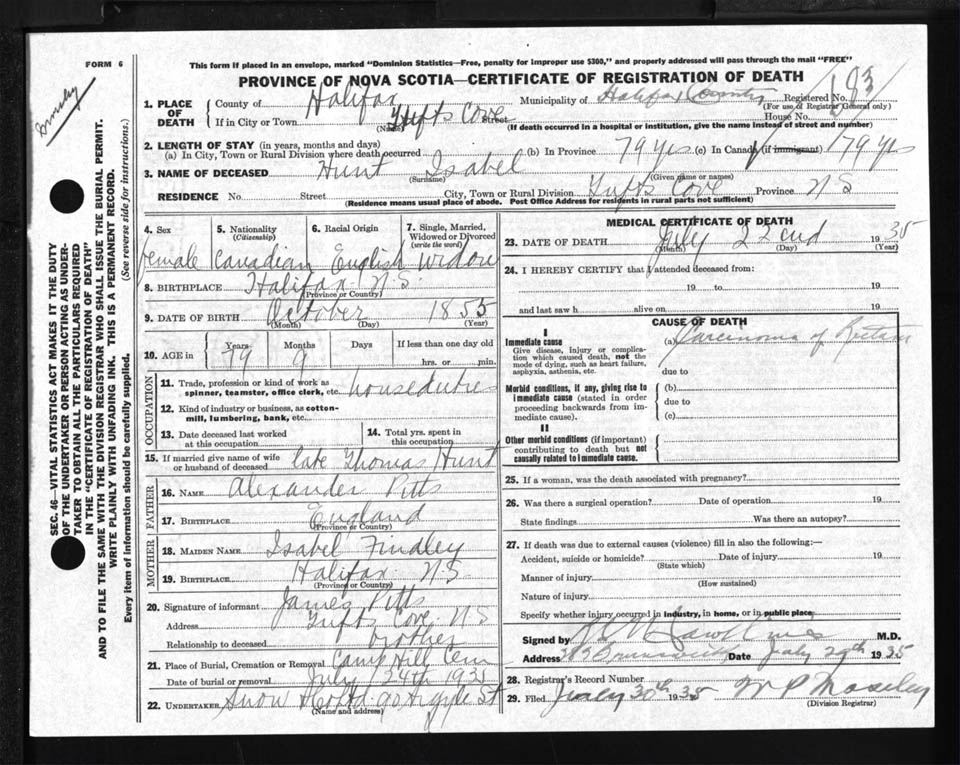 FORM 6
This form if placed in an envelope, marked "Dominion Statistics—Free, penalty for improper use $300," and properly addressed will pass through the mail "FREE"
PROVINCE OF NOVA SCOTIA—CERTIFICATE OF REGISTRATION OF DEATH
1. PLACE OF DEATH
County of Halifax Municipality of Halifax County Registered No.
(For use of Registrar General only)
If in City or Town Tufts Cove Street House No.
(Name) (If death occurred in a hospital or institution, give the name instead of street and number)
2. LENGTH OF STAY (in years, months and days)
(a) In City, Town or Rural Division where death occurred (b) In Province 79 yrs (c) In Canada (if immigrant) 79 yrs
3. NAME OF DECEASED Hunt Isabel
(Surname) (Given name or names)
RESIDENCE No. Street City, Town or Rural Division Tufts Cove Province N S
(Residence means usual place of abode. Post Office Address for residents in rural parts not sufficient)
4. Sex female
5. Nationality (Citizenship) Canadian
6. Racial Origin English
7. Single, Married, Widowed or Divorced (write the word) Widow
8. BIRTHPLACE Halifax N.S
(Province or Country)
9. DATE OF BIRTH October 1855
(Month) (Day) (Year)
10. AGE in Years Months Days If less than one day old
79 9 hrs. or min.
OCCUPATION
11. Trade, profession or kind of work as spinner, teamster, office clerk, etc. house duties
12. Kind of industry or business, as cotton-mill, lumbering, bank, etc.
13. Date deceased last worked at this occupation
14. Total yrs. spent in this occupation
15. If married give name of wife or husband of deceased late Thomas Hunt
FATHER
16. NAME Alexander Pitts
17. BIRTHPLACE England
(Province or Country)
MOTHER
18. MAIDEN NAME Isabel Findley
19. BIRTHPLACE Halifax N S
(Province or Country)
20. Signature of informant James Pitts
Address Tufts Cove N S
Relationship to deceased brother
21. Place of Burial, Cremation or Removal Camp Hill Cem
Date of burial or removal July 24th 1935
22. UNDERTAKER Snow & Co Ltd 90 Argyle St
(Name and address)
MEDICAL CERTIFICATE OF DEATH
23. DATE OF DEATH July 22nd 1935
(Month) (Day) (Year)
24. I HEREBY CERTIFY that I attended deceased from:
19 to 19
and last saw h alive on 19
CAUSE OF DEATH
I
Immediate cause
Give disease, injury or complication which caused death, not the mode of dying, such as heart failure, asphyxia, asthenia, etc.
(a) Carcinoma of
due to
Morbid conditions, if any, giving rise to immediate cause (stated in order proceeding backwards from immediate cause).
(b)
due to
(c)
II
Other morbid conditions (if important) contributing to death but not causally related to immediate cause.
25. If a woman, was the death associated with pregnancy?
26. Was there a surgical operation? Date of operation 19
State findings Was there an autopsy?
27. If death was due to external causes (violence) fill in also the following:—
Accident, suicide or homicide? Date of injury 19
(State which)
Manner of injury
(How sustained)
Nature of injury
Specify whether injury occurred in industry, in home, or in public place
Signed by M.D.
Address Brunswick Date July 29th 1935
28. Registrar's Record Number
29. Filed July 30th 1935 W P Moseley
(Division Registrar)
SEC. 46—VITAL STATISTICS ACT MAKES IT THE DUTY
OF THE UNDERTAKER OR PERSON ACTING AS UNDER-
TAKER TO OBTAIN ALL THE PARTICULARS REQUIRED
IN THE "CERTIFICATE OF REGISTRATION OF DEATH"
AND TO FILE THE SAME WITH THE DIVISION REGISTRAR WHO SHALL ISSUE THE BURIAL PERMIT.
WRITE PLAINLY WITH UNFADING INK. THIS IS A PERMANENT RECORD.
Every item of information should be carefully supplied. (See reverse side for instructions.)